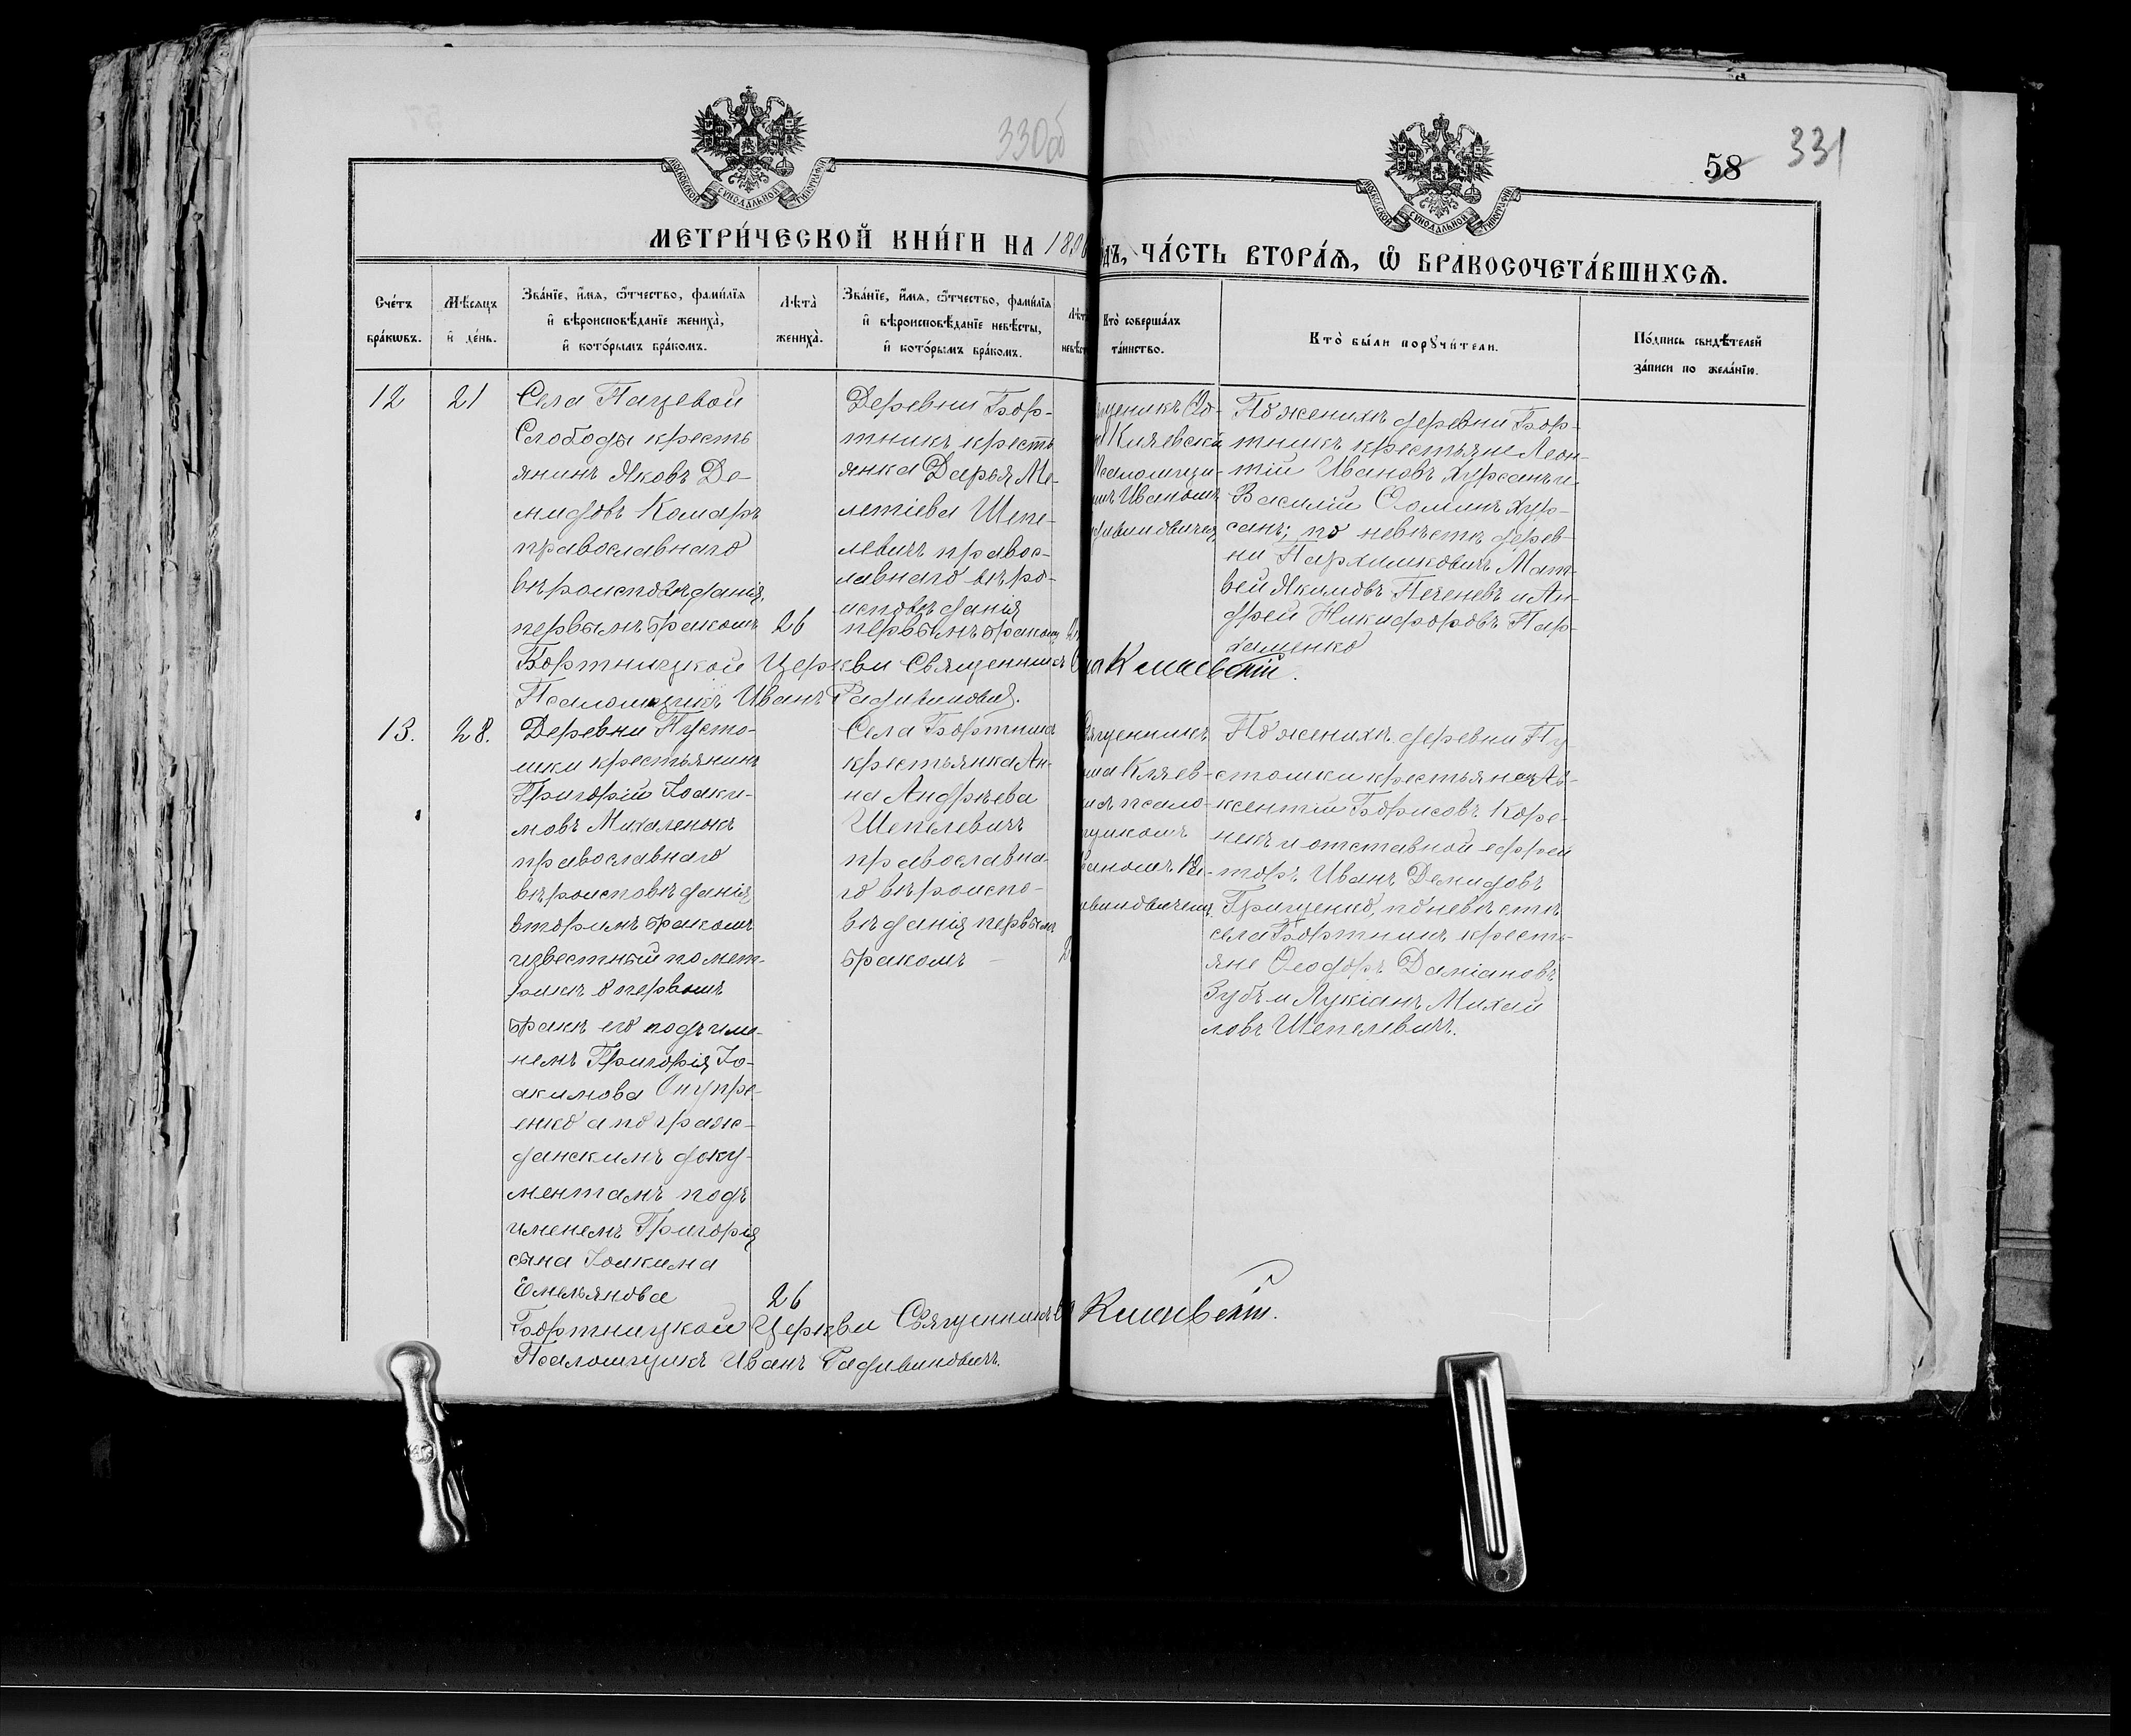 330об
58 331
МОСКОВСКОЙ СУНОДАЛЬНОЙ ТИПОГРАФІИ
МОСКОВСКОЙ СУНОДАЛЬНОЙ ТИПОГРАФІИ
МЕТРИ́ЧЕСКОЙ КНИ́ГИ НА 18
ДЪ, ЧА́СТЬ ВТОРА́Ѧ, Ѽ БРАКОСОЧЕТА́ВШИХСѦ.
Сче́тъ
бра́кωвъ.
Мѣ́сяцъ
и҆ де́нь.
Зва́нїе, и҆́мѧ, ѻ҆́тчество, фами́лїѧ
и҆ вѣроисповѣ́данїе жениха̀,
и҆ кото́рымъ бра́комъ.
Лѣта̀
жениха̀.
Зва́нїе, и҆́мѧ, ѻ҆́тчество, фами́лїѧ
и҆ вѣроисповѣ́данїе невѣ́сты,
и҆ кото́рымъ бра́комъ.
Лѣт
невѣс
Кто̀ соверша́лъ
та́инство.
Кто̀ бы́ли порꙋчи́тели.
По́дпись свидѣ́телей
за́писи по жела́нїю.
12
21
Села Пацевой
Слободы кресть
янинъ Яковъ Де-
мидовъ Комаръ
православнаго
вѣроисповѣданія,
первымъ бракомъ
26
Деревни Бор-
тникъ кресть
янка Дарья Ме-
летіева Шепе-
левичъ правос-
лавнаго вѣро-
исповѣданія
первымъ бракомъ
щеникъ Ѳо-
Псаломщи-
Иваномъ
По женихѣ деревни Бор-
тникъ крестьяне Леон-
тій Ивановъ Хурсанъ и
Василій Ѳоминъ Хур-
санъ; по невѣстѣ дерев-
ни Пархимковичъ Мат-
вей Якимовъ Печеневъ и Ан-
дрей Никифоровъ Пар-
хаменко
Бортницкой Церкви Священникъ
Псаломщикъ Иванъ Радивиновичъ.
13.
28.
Деревни Пусто-
шки крестьянинъ
Григорій Іоаки-
мовъ Михаленокъ
православнаго
вѣроисповѣданія,
вторимъ бракомъ
извѣстный по мет-
рикѣ о первомъ
бракѣ его подъ име-
немъ Григорія Іо-
акимова Онупре-
енко а по граж-
данскимъ доку-
ментамъ подъ
именемъ Григорія
сына Іоакима
Емельянова
26
Села Бортникъ
крестьянка Ан-
на Андрѣева
Шепелевичъ
православна-
го вѣроиспо-
вѣданія первымъ
бракомъ
щенникъ
псало-
щикомъ
По женихѣ деревни Пу
стошки крестьяне Ав-
ксентій Борисовъ Коре-
никъ и отставной ефрей
торъ Иванъ Демидовъ
Грищенко, по невѣстѣ
села Бортникъ кресть-
яне Ѳеодоръ Даміановъ
Зубъ и Лукіанъ Михай
ловъ Шепелевичъ.
Бортницкой Церкви Священникъ
Псаломщикъ Иванъ Радивиновичъ.